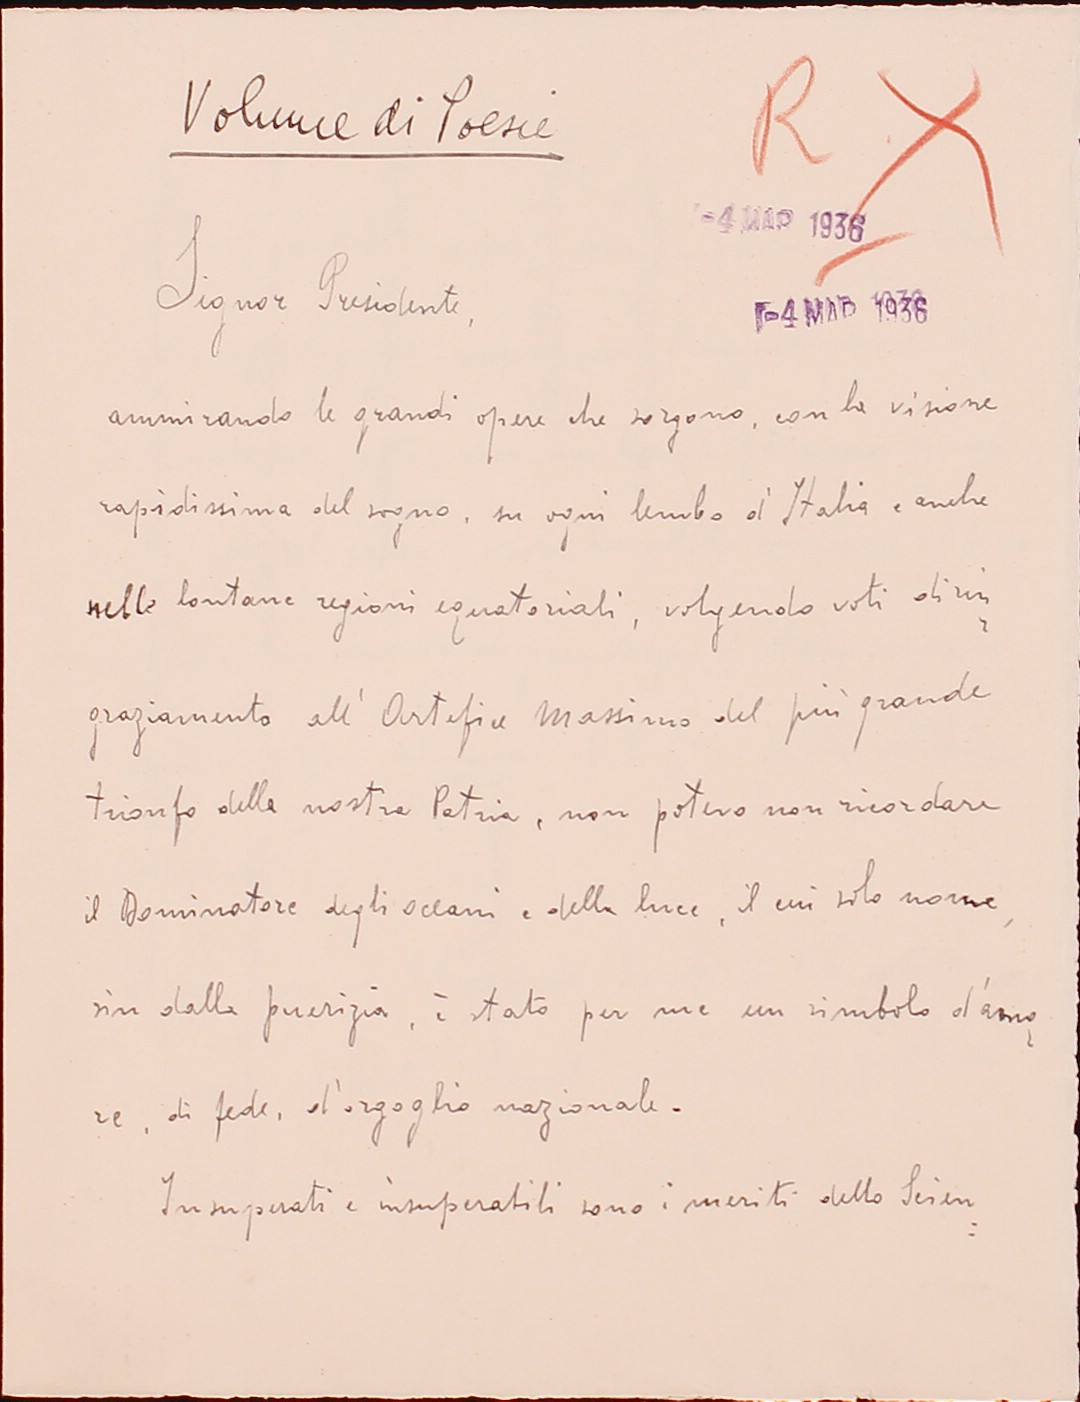 Volume di Poesie
R X
-4 MAR 1936
-4 MAR 1936
Signor Presidente,
ammirando le grandi opere che sorgono, con la visione
rapidissima del sogno, su ogni lembo d'Italia e anche
nelle lontane regioni equatoriali, volgendo voti di rin-
graziamento all'Artefice Massimo del più grande
trionfo della nostra Patria, non potevo non ricordare
il Dominatore degli oceani e della luce, il cui solo nome,
sin dalla puerizia, è stato per me un simbolo d'amo-
re, di fede, d'orgoglio nazionale.
Insuperati e insuperabili sono i meriti dello Scien=